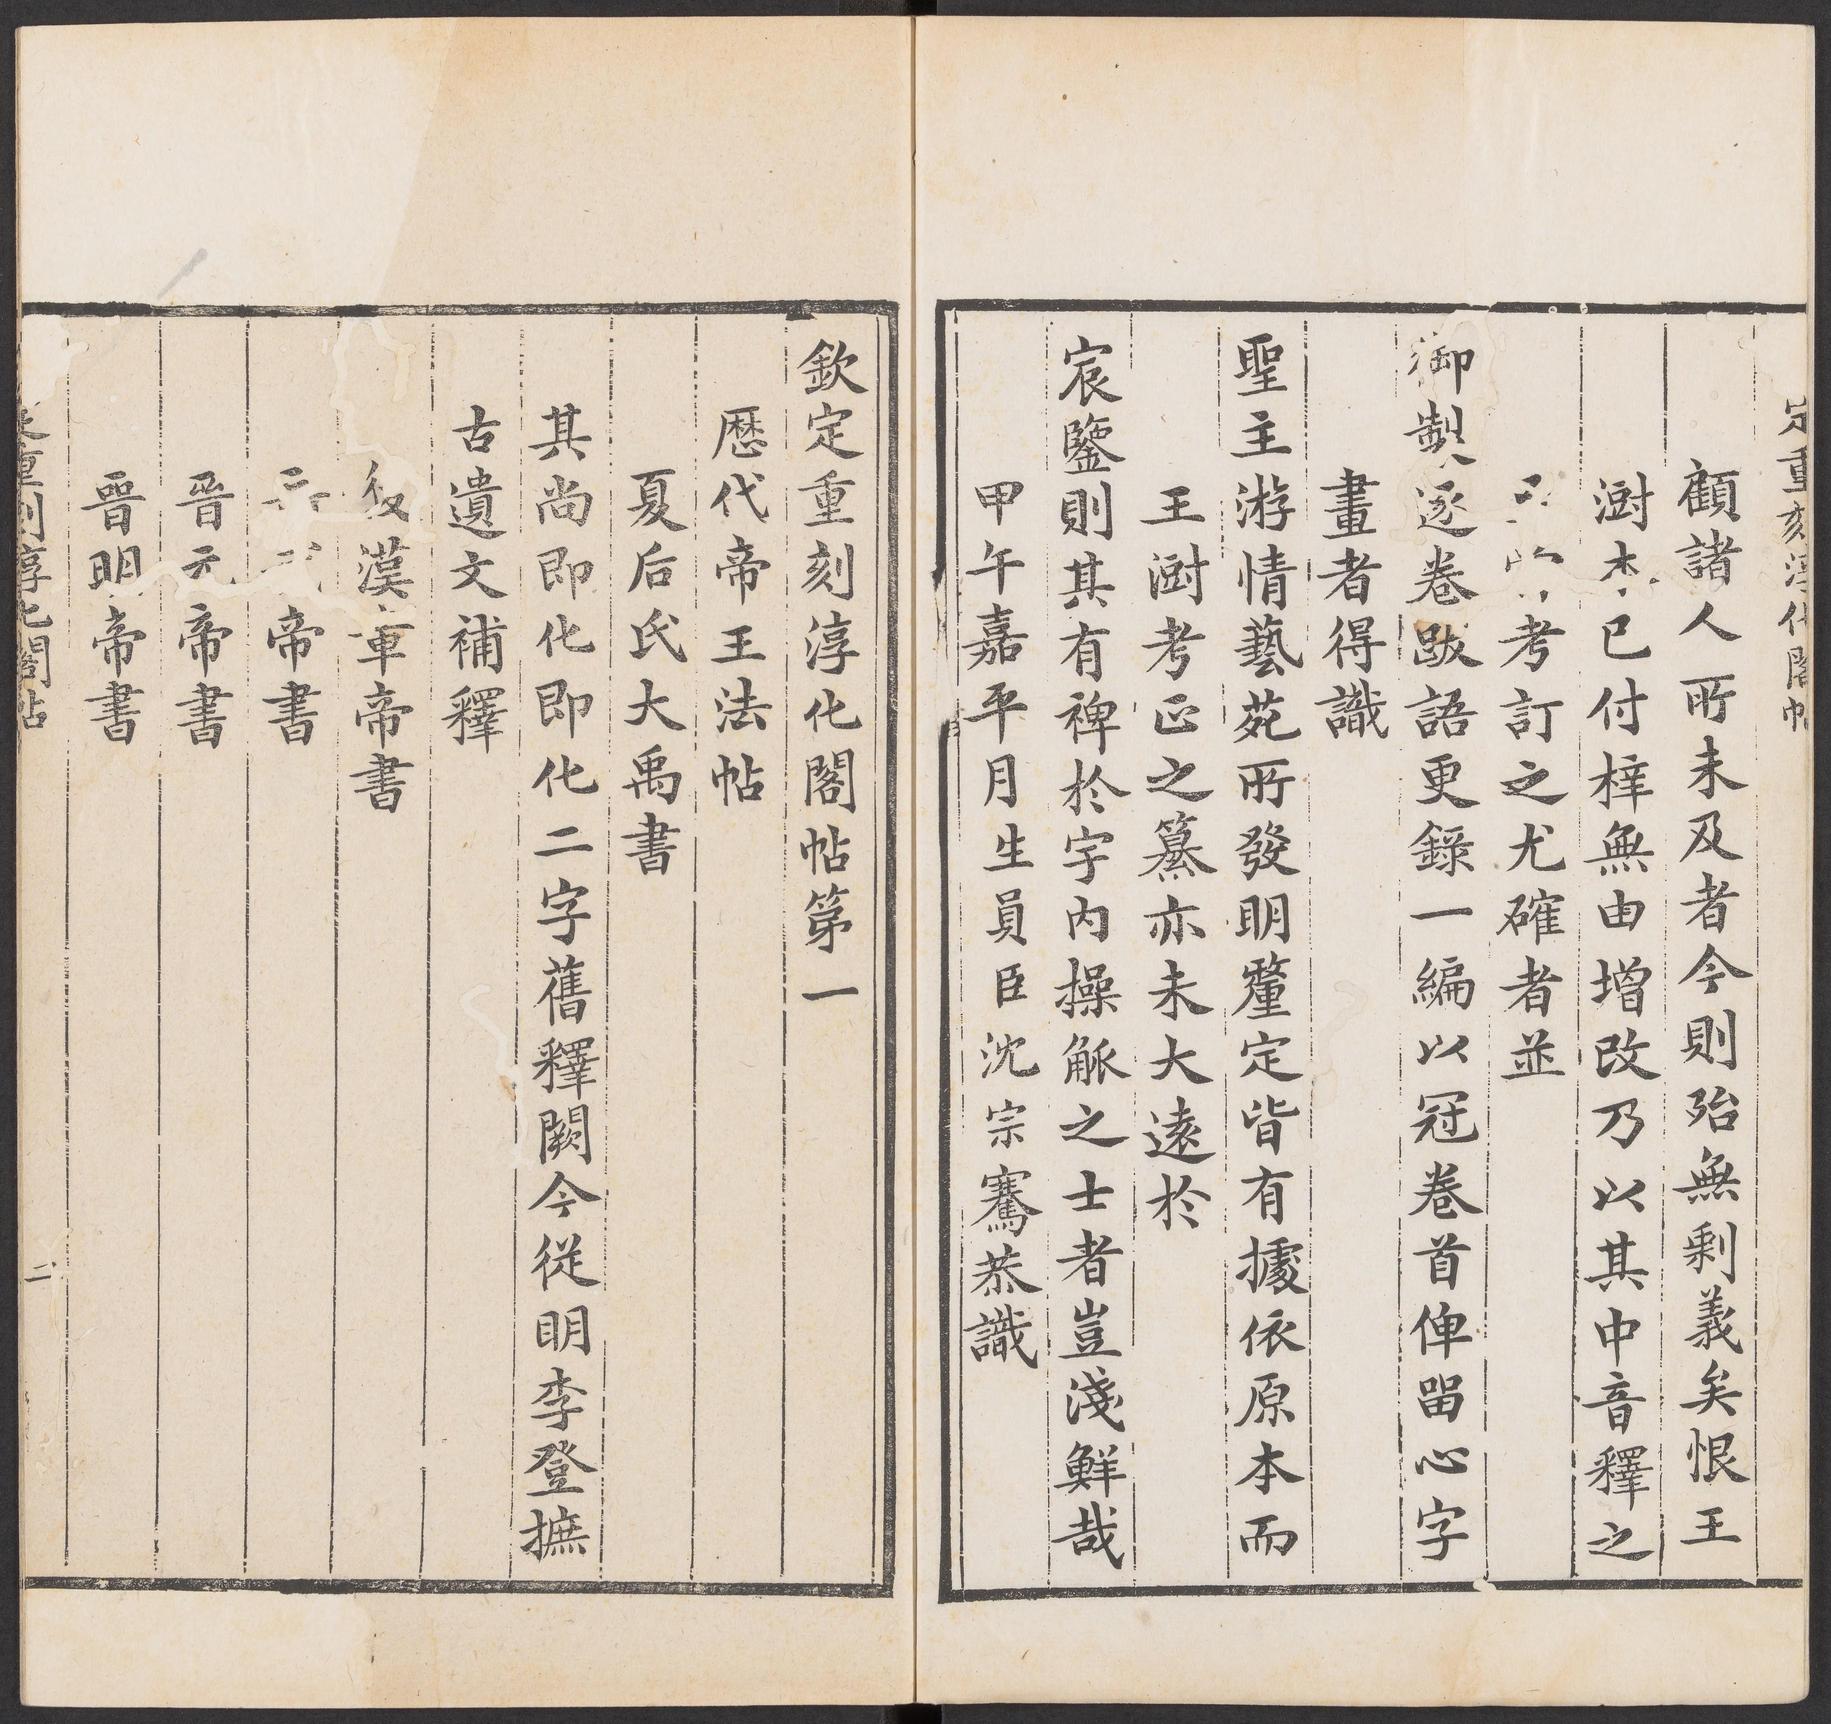 定重刻淳化閣帖
顧諸人所未及者今則殆無剩義矣恨王
澍本已付梓無由增改乃以其中音釋之
考訂之尤確者並
御製逐卷跋語更錄一編以冠卷首俾留心字
畫者得識
聖主游情藝苑所發明釐定皆有據依原本而
王澍考正之纂亦未大遠於
宸鑒則其有裨於字內操觚之士者豈淺鮮哉
甲午嘉平月生員臣沈宗騫恭識
欽定重刻淳化閣帖第一
歷代帝王法帖
夏后氏大禹書
其尚即化即化二字舊釋闕今從明李登摭
古遺文補釋
漢章帝書
帝書
晉元帝書
晉明帝書
定重刻淳化閣帖
二